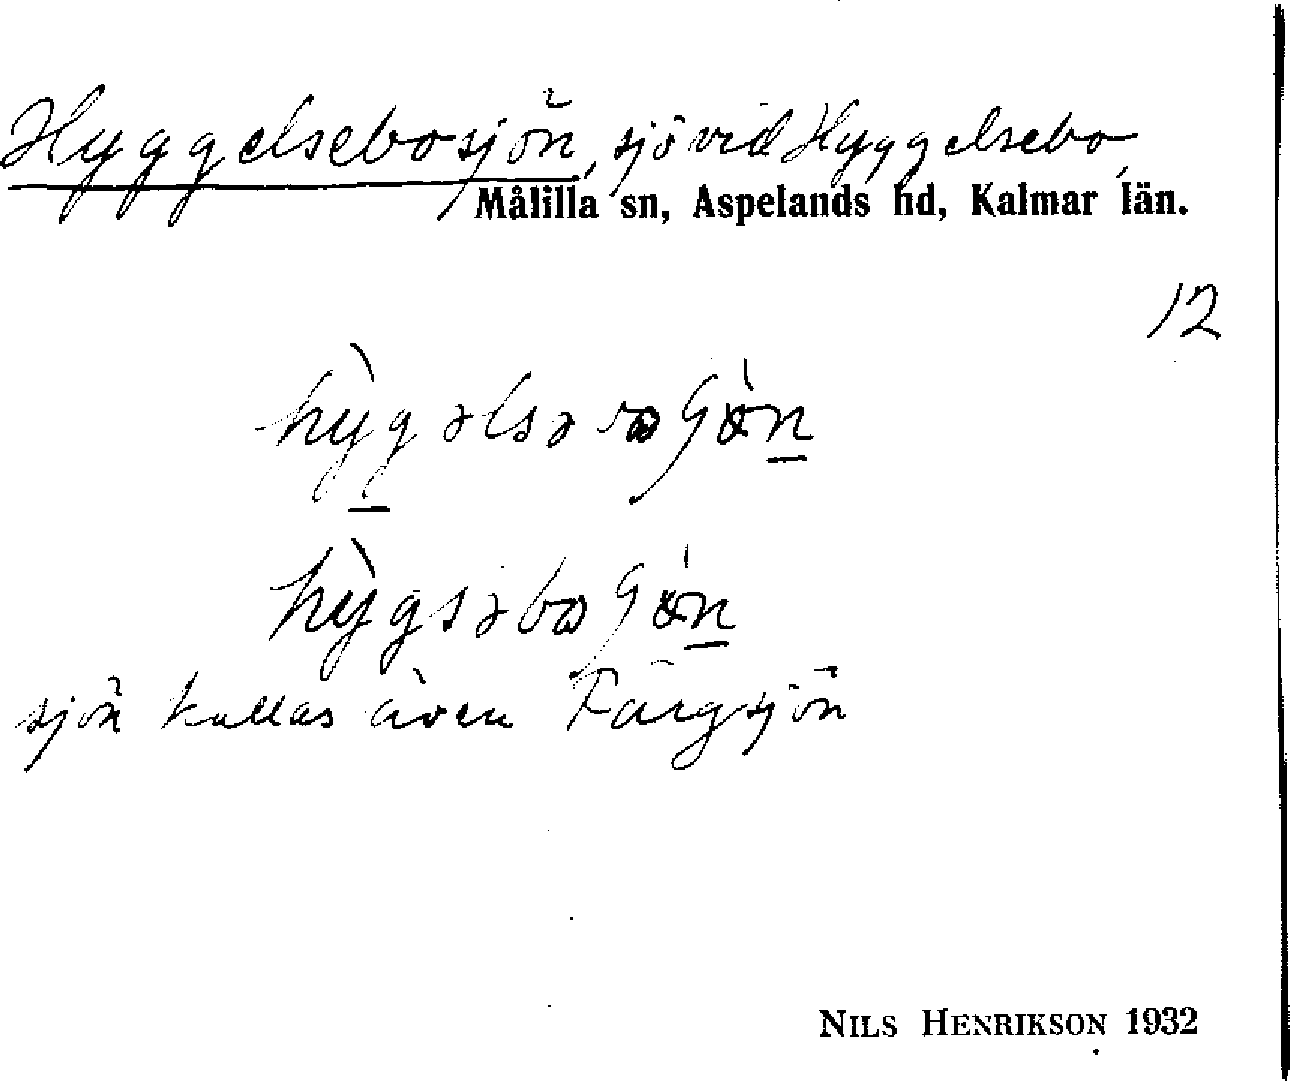 Hyggelsebosjön, sjö vid Hyggelsebo,
Målilla sn, Aspelands hd, Kalmar län.
12
sjön kallas även Färgsjön
NILS HENRIKSON 1932